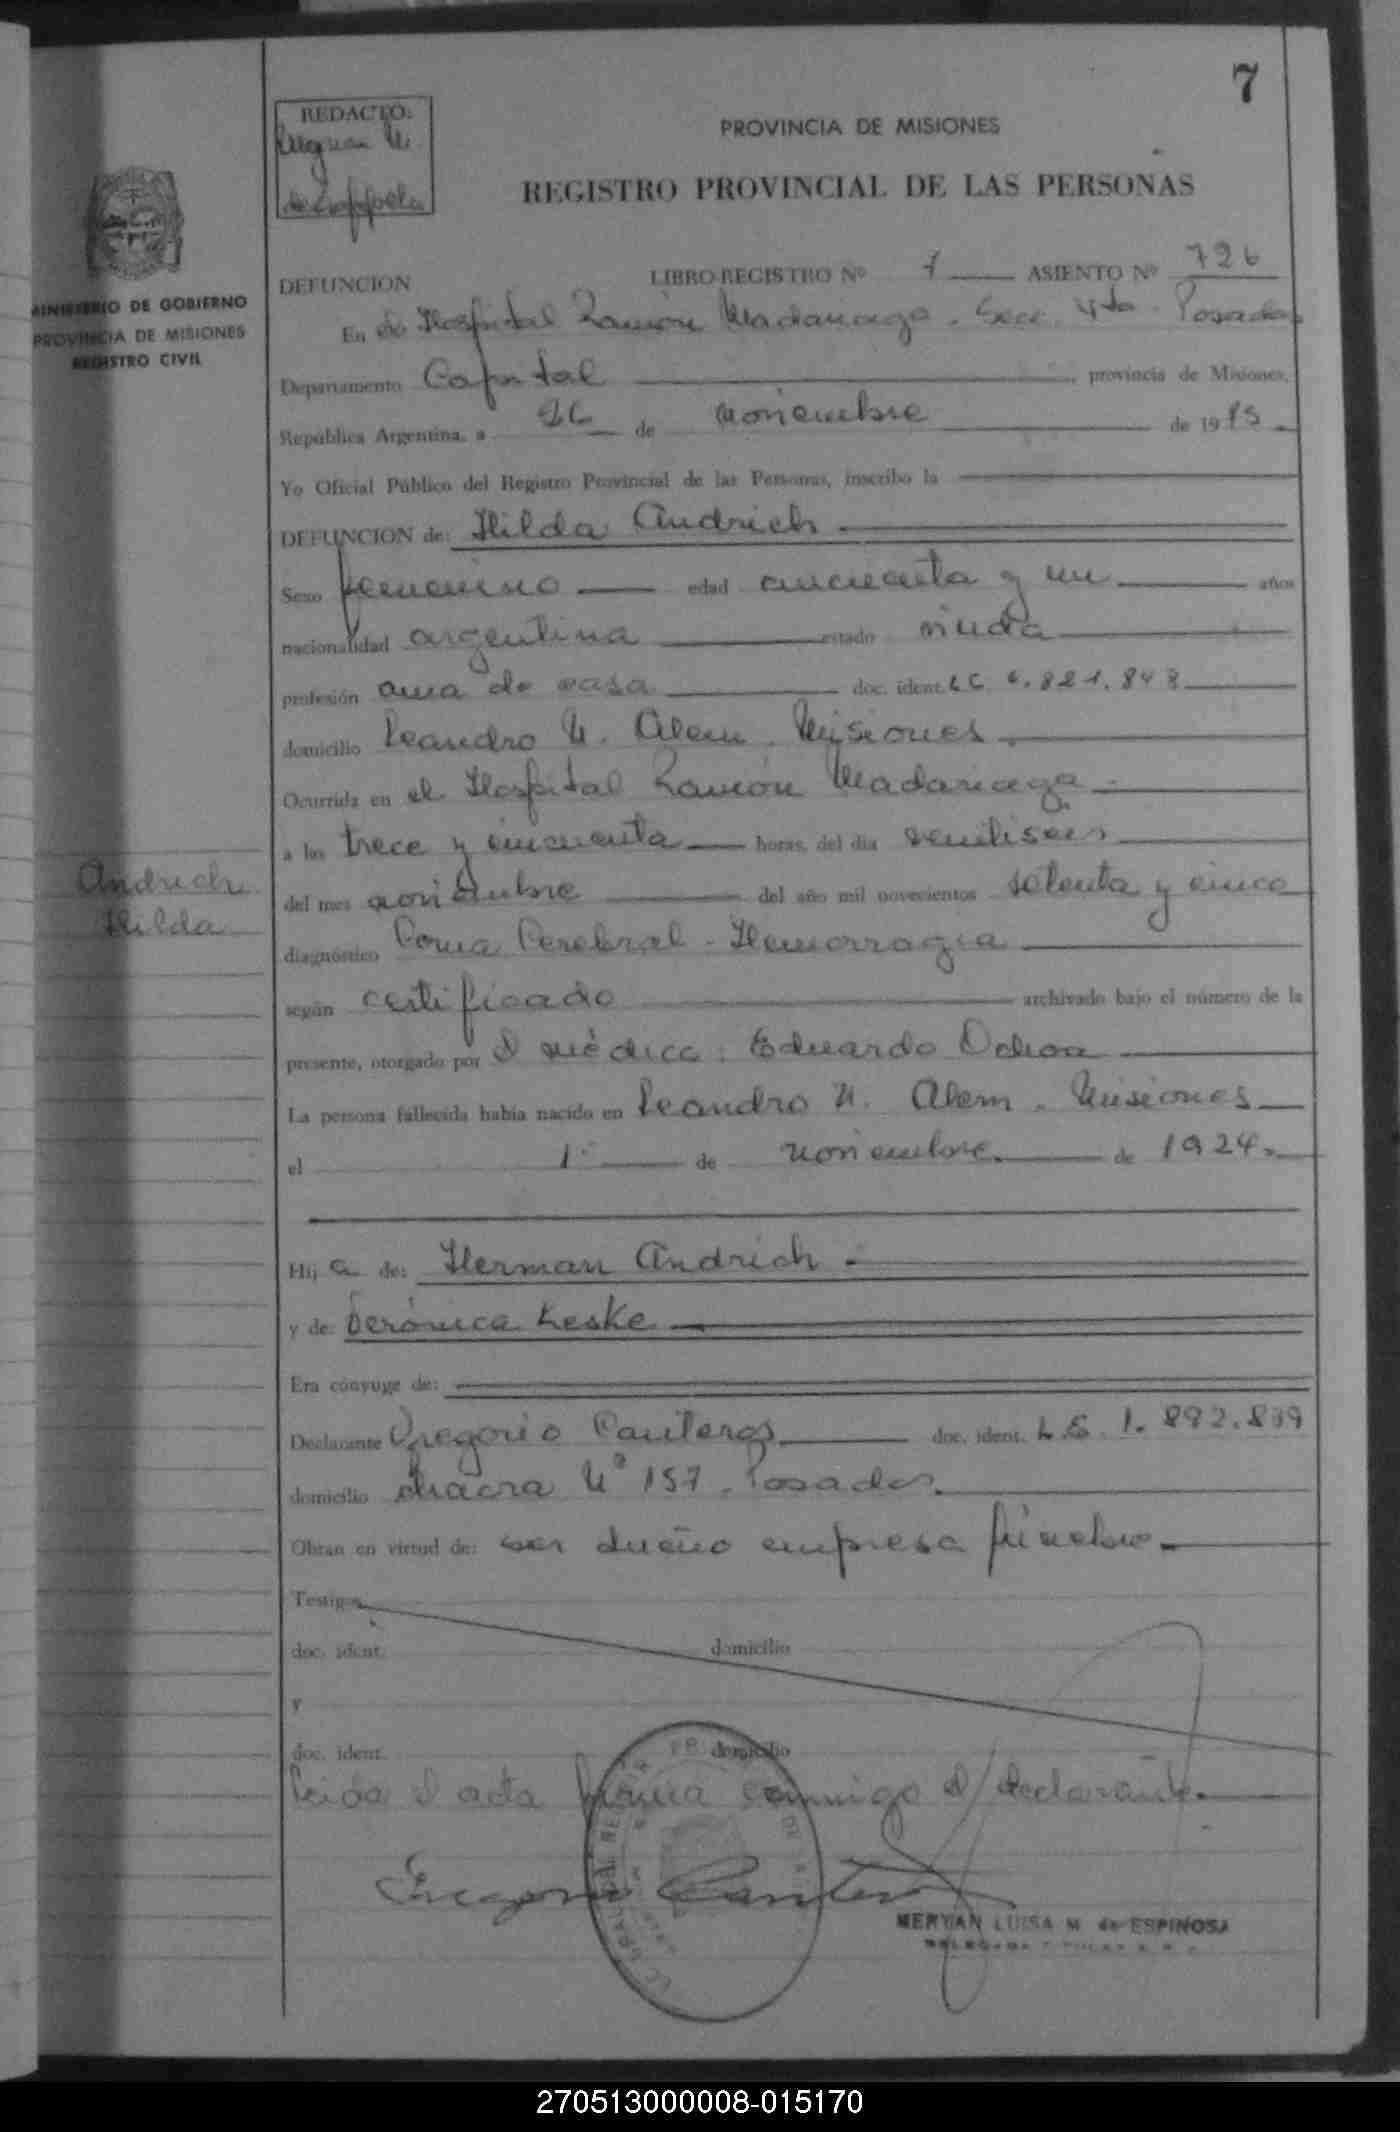 7
REDACTO:
PROVINCIA DE MISIONES
REGISTRO PROVINCIAL DE LAS PERSONAS
MINISTERIO DE GOBIERNO
PROVINCIA DE MISIONES
REGISTRO CIVIL
DEFUNCION LIBRO-REGISTRO Nº 7 ASIENTO Nº 726
En el Hospital Ramón Madariaga. Secc. 4ta. Posadas
Departamento Capital provincia de Misiones,
República Argentina, a 26 de noviembre de 1975
Yo Oficial Público del Registro Provincial de las Personas, inscribo la
DEFUNCION de: Hilda Andrich
Sexo femenino edad cincuenta y un años
nacionalidad argentina estado viuda
profesión ama de casa doc. ident. LC 6.821.843
domicilio Leandro N. Alem. Misiones.
Ocurrida en el Hospital Ramón Madariaga.
a las trece y cincuenta horas, del día veintiseis
del mes noviembre del año mil novecientos setenta y cinco
Andrich
Hilda
diagnóstico Coma Cerebral - Hemorragia
según certificado archivado bajo el número de la
presente, otorgado por el médico: Eduardo Ochoa
La persona fallecida había nacido en Leandro N. Alem. Misiones
el 1º de noviembre. de 1924.
Hij a de: Herman Andrich.
y de: Verónica Leske
Era cónyuge de:
Declarante Gregorio Canteros doc. ident. L.E. 1.892.839
domicilio chacra Nº 157. Posadas.
Obran en virtud de: ser dueño empresa fúnebre
Testigos
doc. ident. domicilio
y
doc. ident. domicilio
Leida el acta firma conmigo el declarante.
MERYAN LUISA M. de ESPINOSA
270513000008-015170